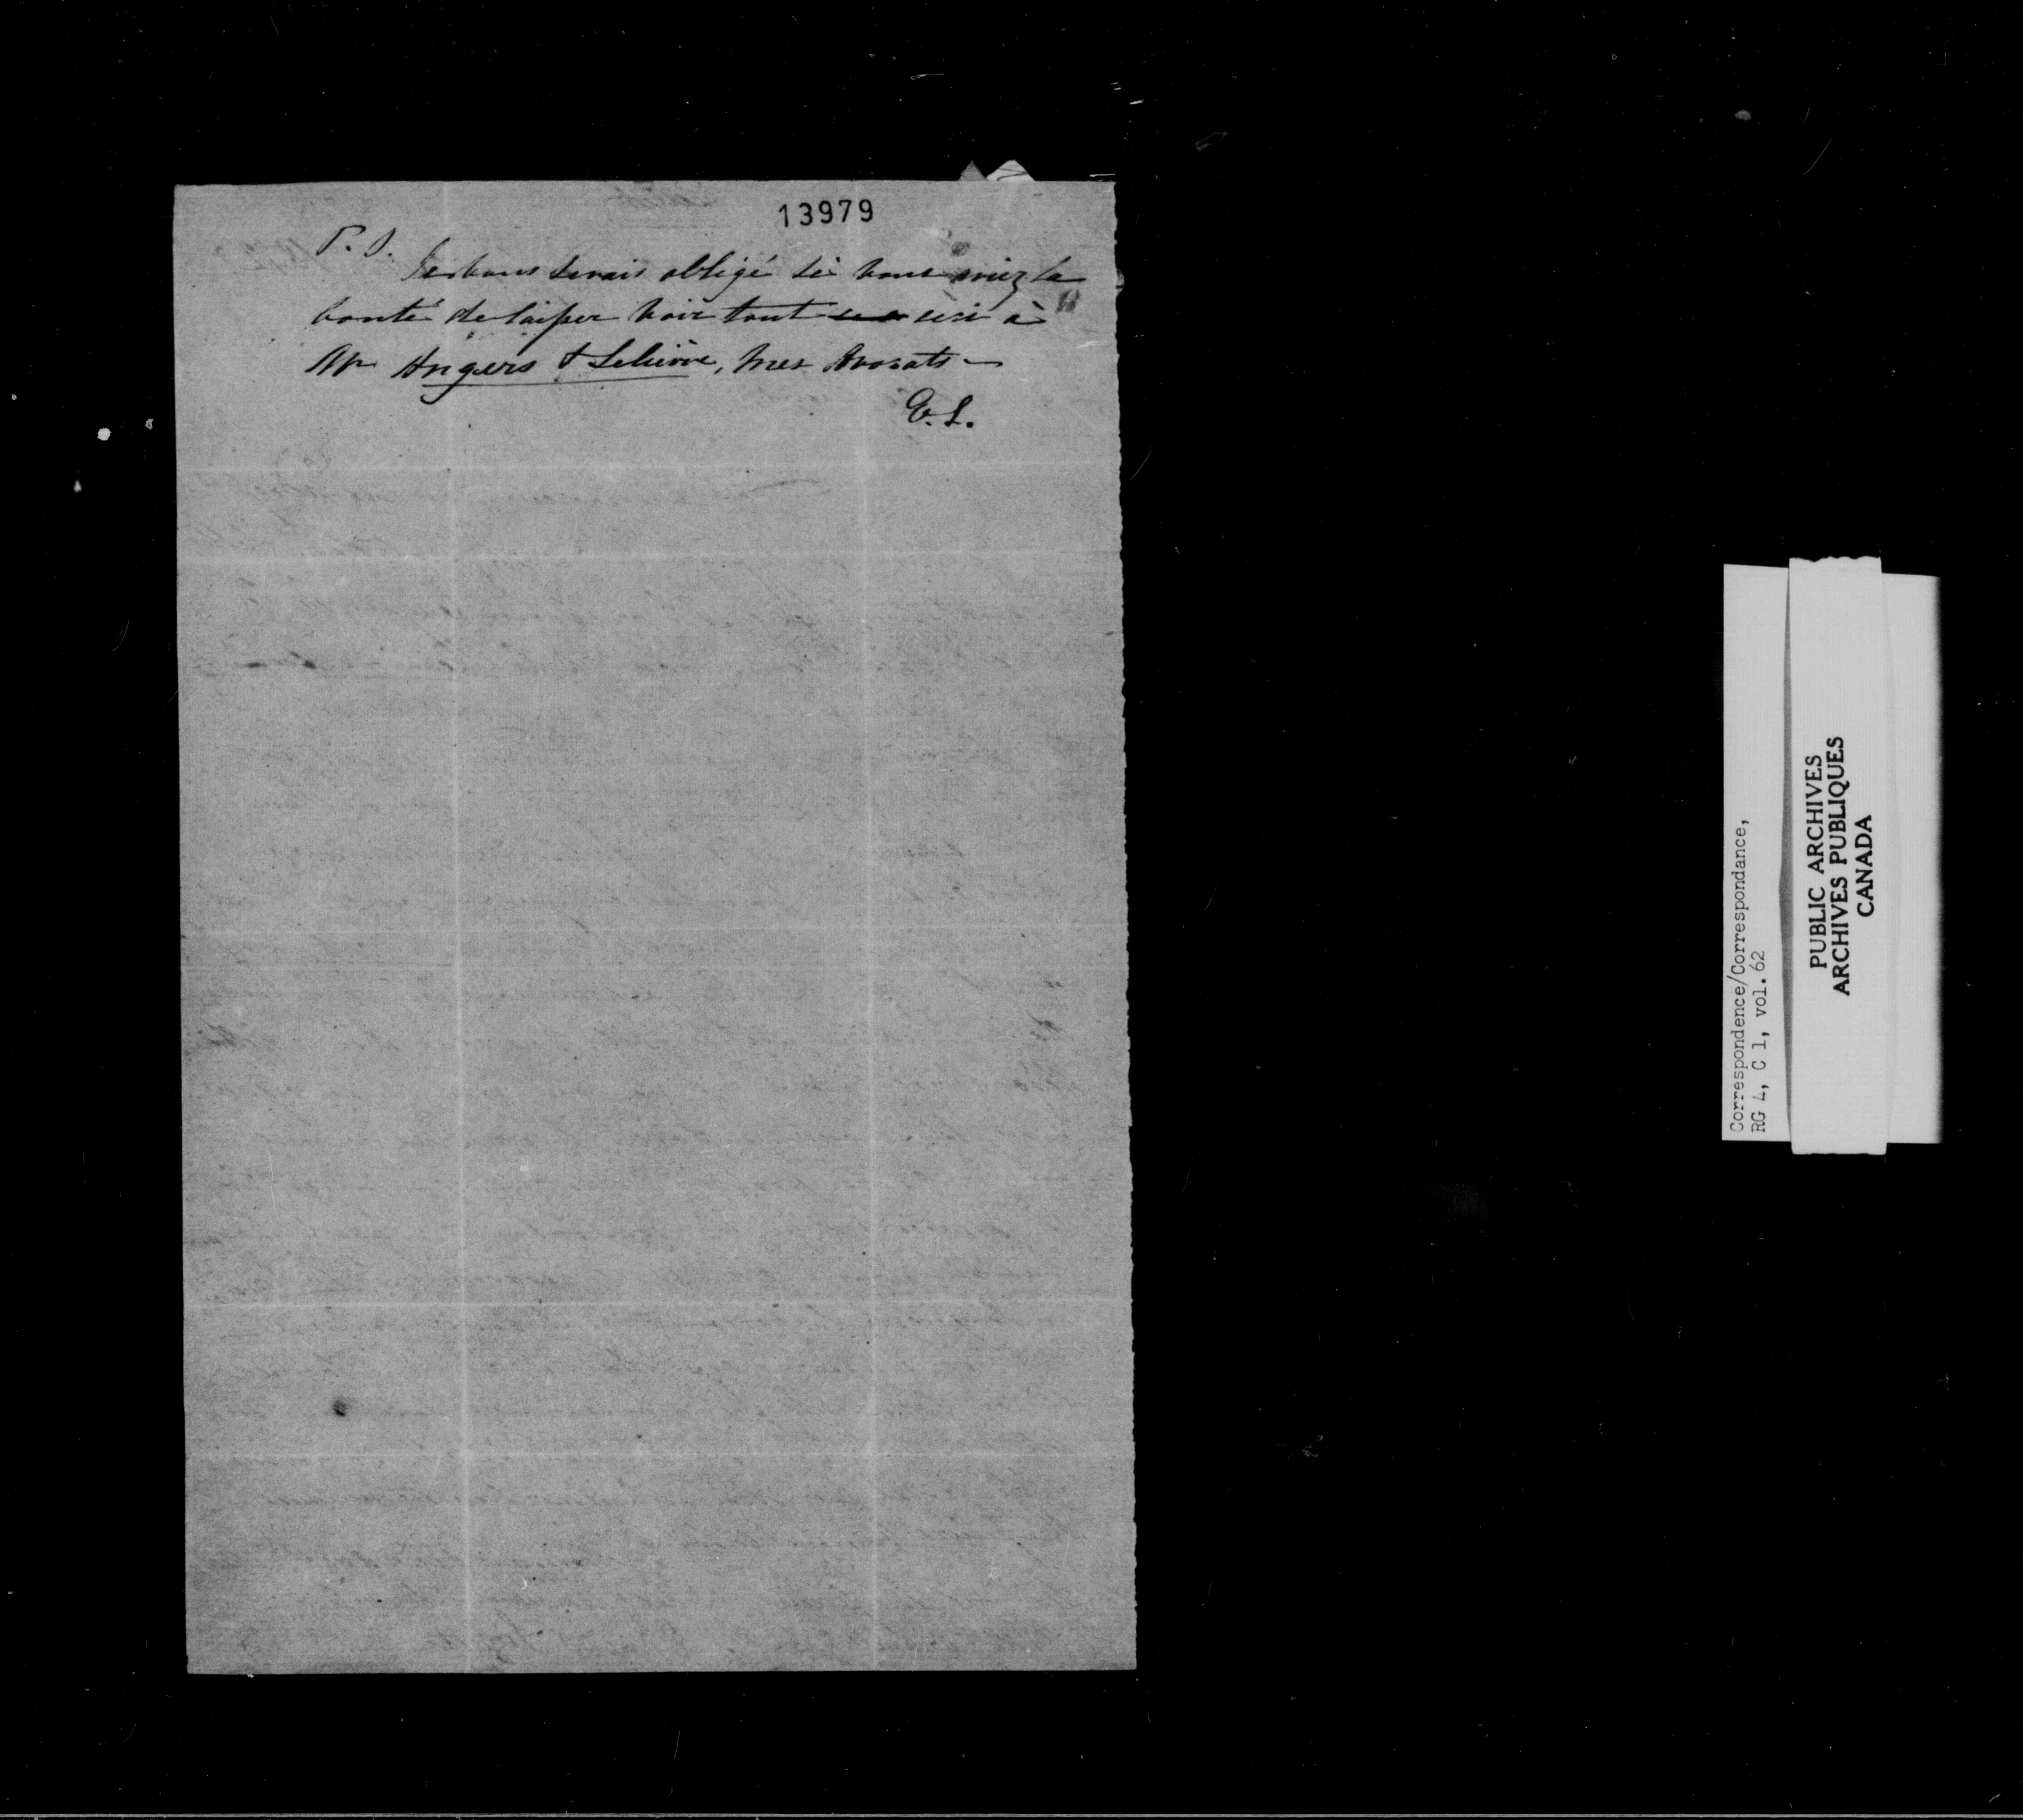 13979
P. S.
Je vous serais obligé si vous aviez la
bonté de laisser voir tout ceci à
Mrs Angers & Lelièvre, mes Avocats —
E. L.
Correspondence/Correspondance,
RG 4, C 1, vol. 62
PUBLIC ARCHIVES
ARCHIVES PUBLIQUES
CANADA